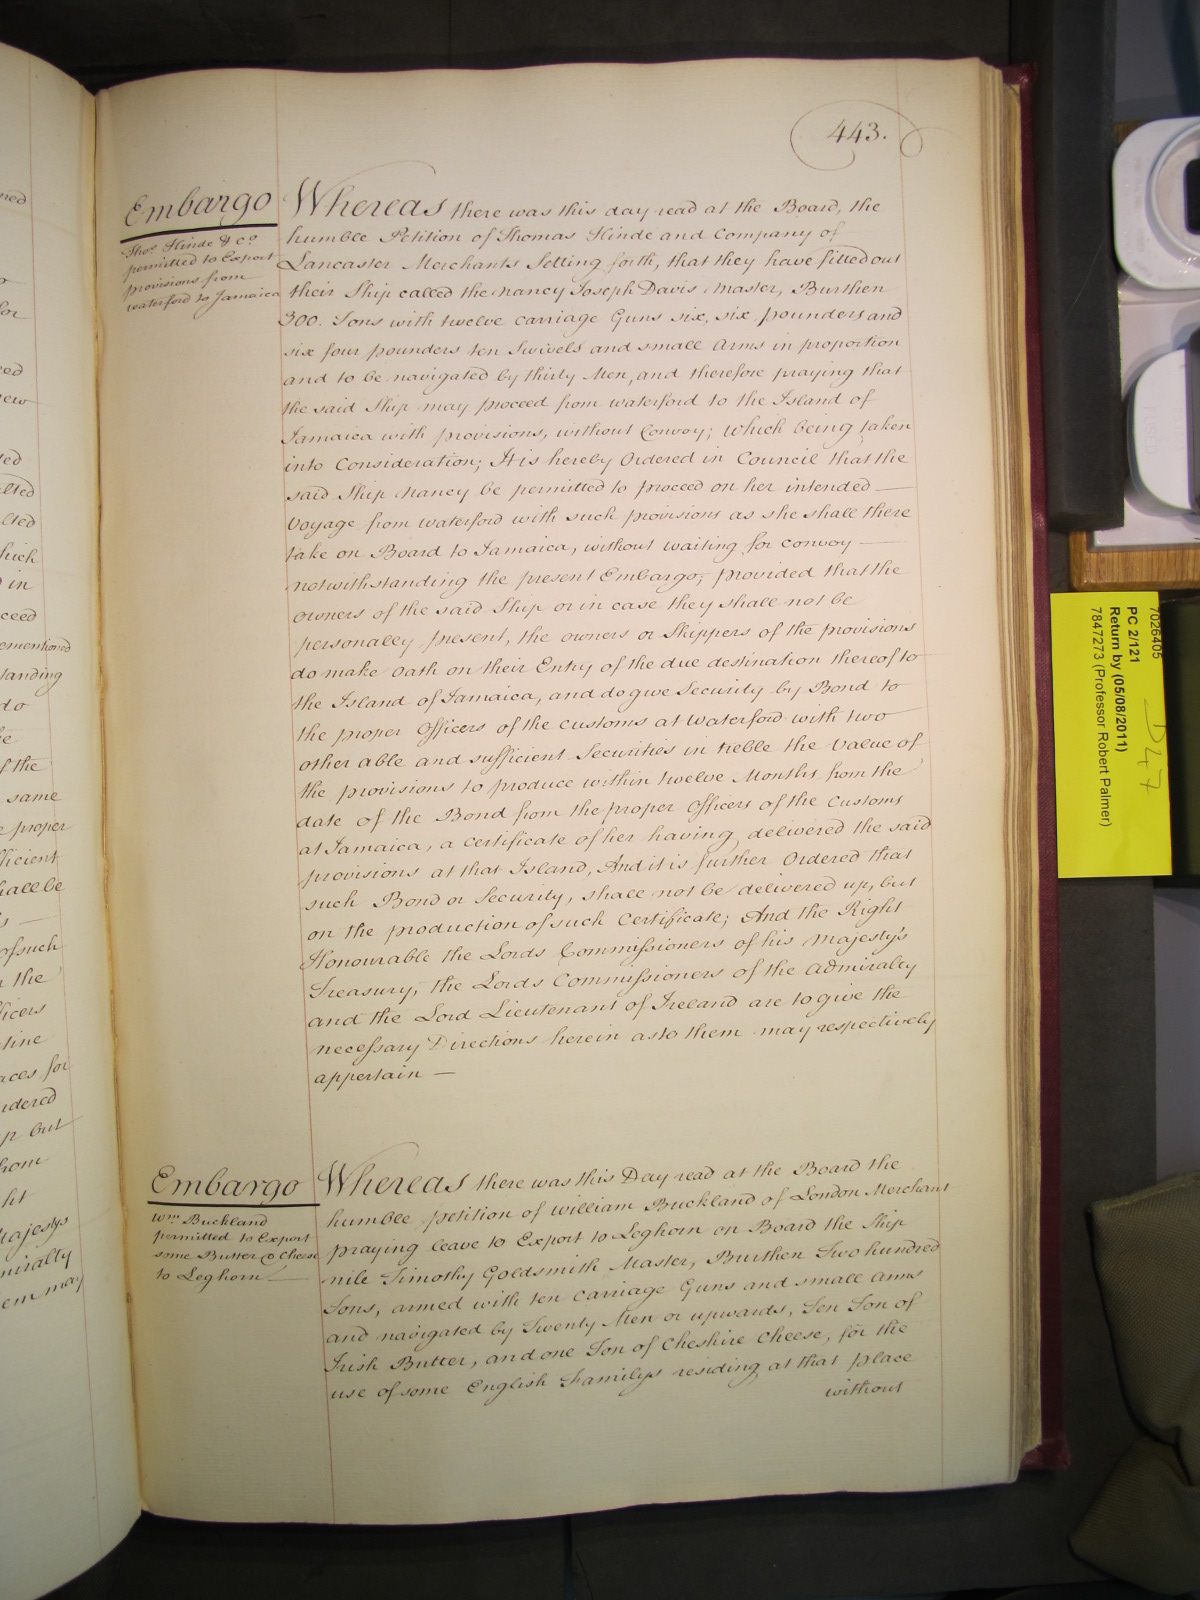 443.
Embargo
Thos. Hinde & Co.
permitted to Export
provisions from
waterford to Jamaica
Whereas there was this day read at the Board, the
humble Petition of Thomas Hinde and Company of
Lancaster Merchants Setting forth, that they have fitted out
their Ship called the Nancy Joseph Davis Master, Burthen
300. Tons with twelve Carriage Guns six, six pounders and
six four pounders ten Swivels and small Arms in proportion
and to be navigated by thirty Men, and therefore praying that
the said Ship may proceed from waterford to the Island of
Jamaica with provisions, without Convoy; which being taken
into Consideration; It is hereby Ordered in Council that the
said Ship Nancy be permitted to proceed on her intended —
Voyage from waterford with such provisions as she shall there
take on Board to Jamaica, without waiting for Convoy —
notwithstanding the present Embargo; provided that the
owners of the said Ship or in case they shall not be
personally present, the owners or Skippers of the provisions
do make Oath on their Entry of the due destination thereof to
the Island of Jamaica, and do give Security by Bond to
the proper Officers of the Customs at Waterford with two
other able and sufficient Securities in treble the Value of
the provisions to produce within twelve Months from the
date of the Bond from the proper Officers of the Customs
at Jamaica, a Certificate of her having delivered the said
provisions at that Island, And it is further Ordered that
such Bond or Security, shall not be delivered up, but
on the production of such Certificate; And the Right
Honourable the Lords Commissioners of his Majesty's
Treasury, the Lords Commissioners of the Admiralty
and the Lord Lieutenant of Ireland are to give the
necessary Directions herein as to them may respectively
appertain —
Embargo
Wm. Buckland
permitted to Export
some Butter & Cheese
to Leghorn —
Whereas there was this Day read at the Board the
humble petition of William Buckland of London Merchant
praying leave to Export to Leghorn on Board the Ship
Nile Timothy Goldsmith Master, Burthen Two hundred
Tons, armed with ten Carriage Guns and small Arms
and navigated by Twenty Men or upwards, Ten Ton of
Irish Butter, and one Ton of Cheshire Cheese, for the
use of some English Familys residing at that place
without
7026405
PC 2/121
Return by (05/08/2011)
7847273 (Professor Robert Palmer)
D47